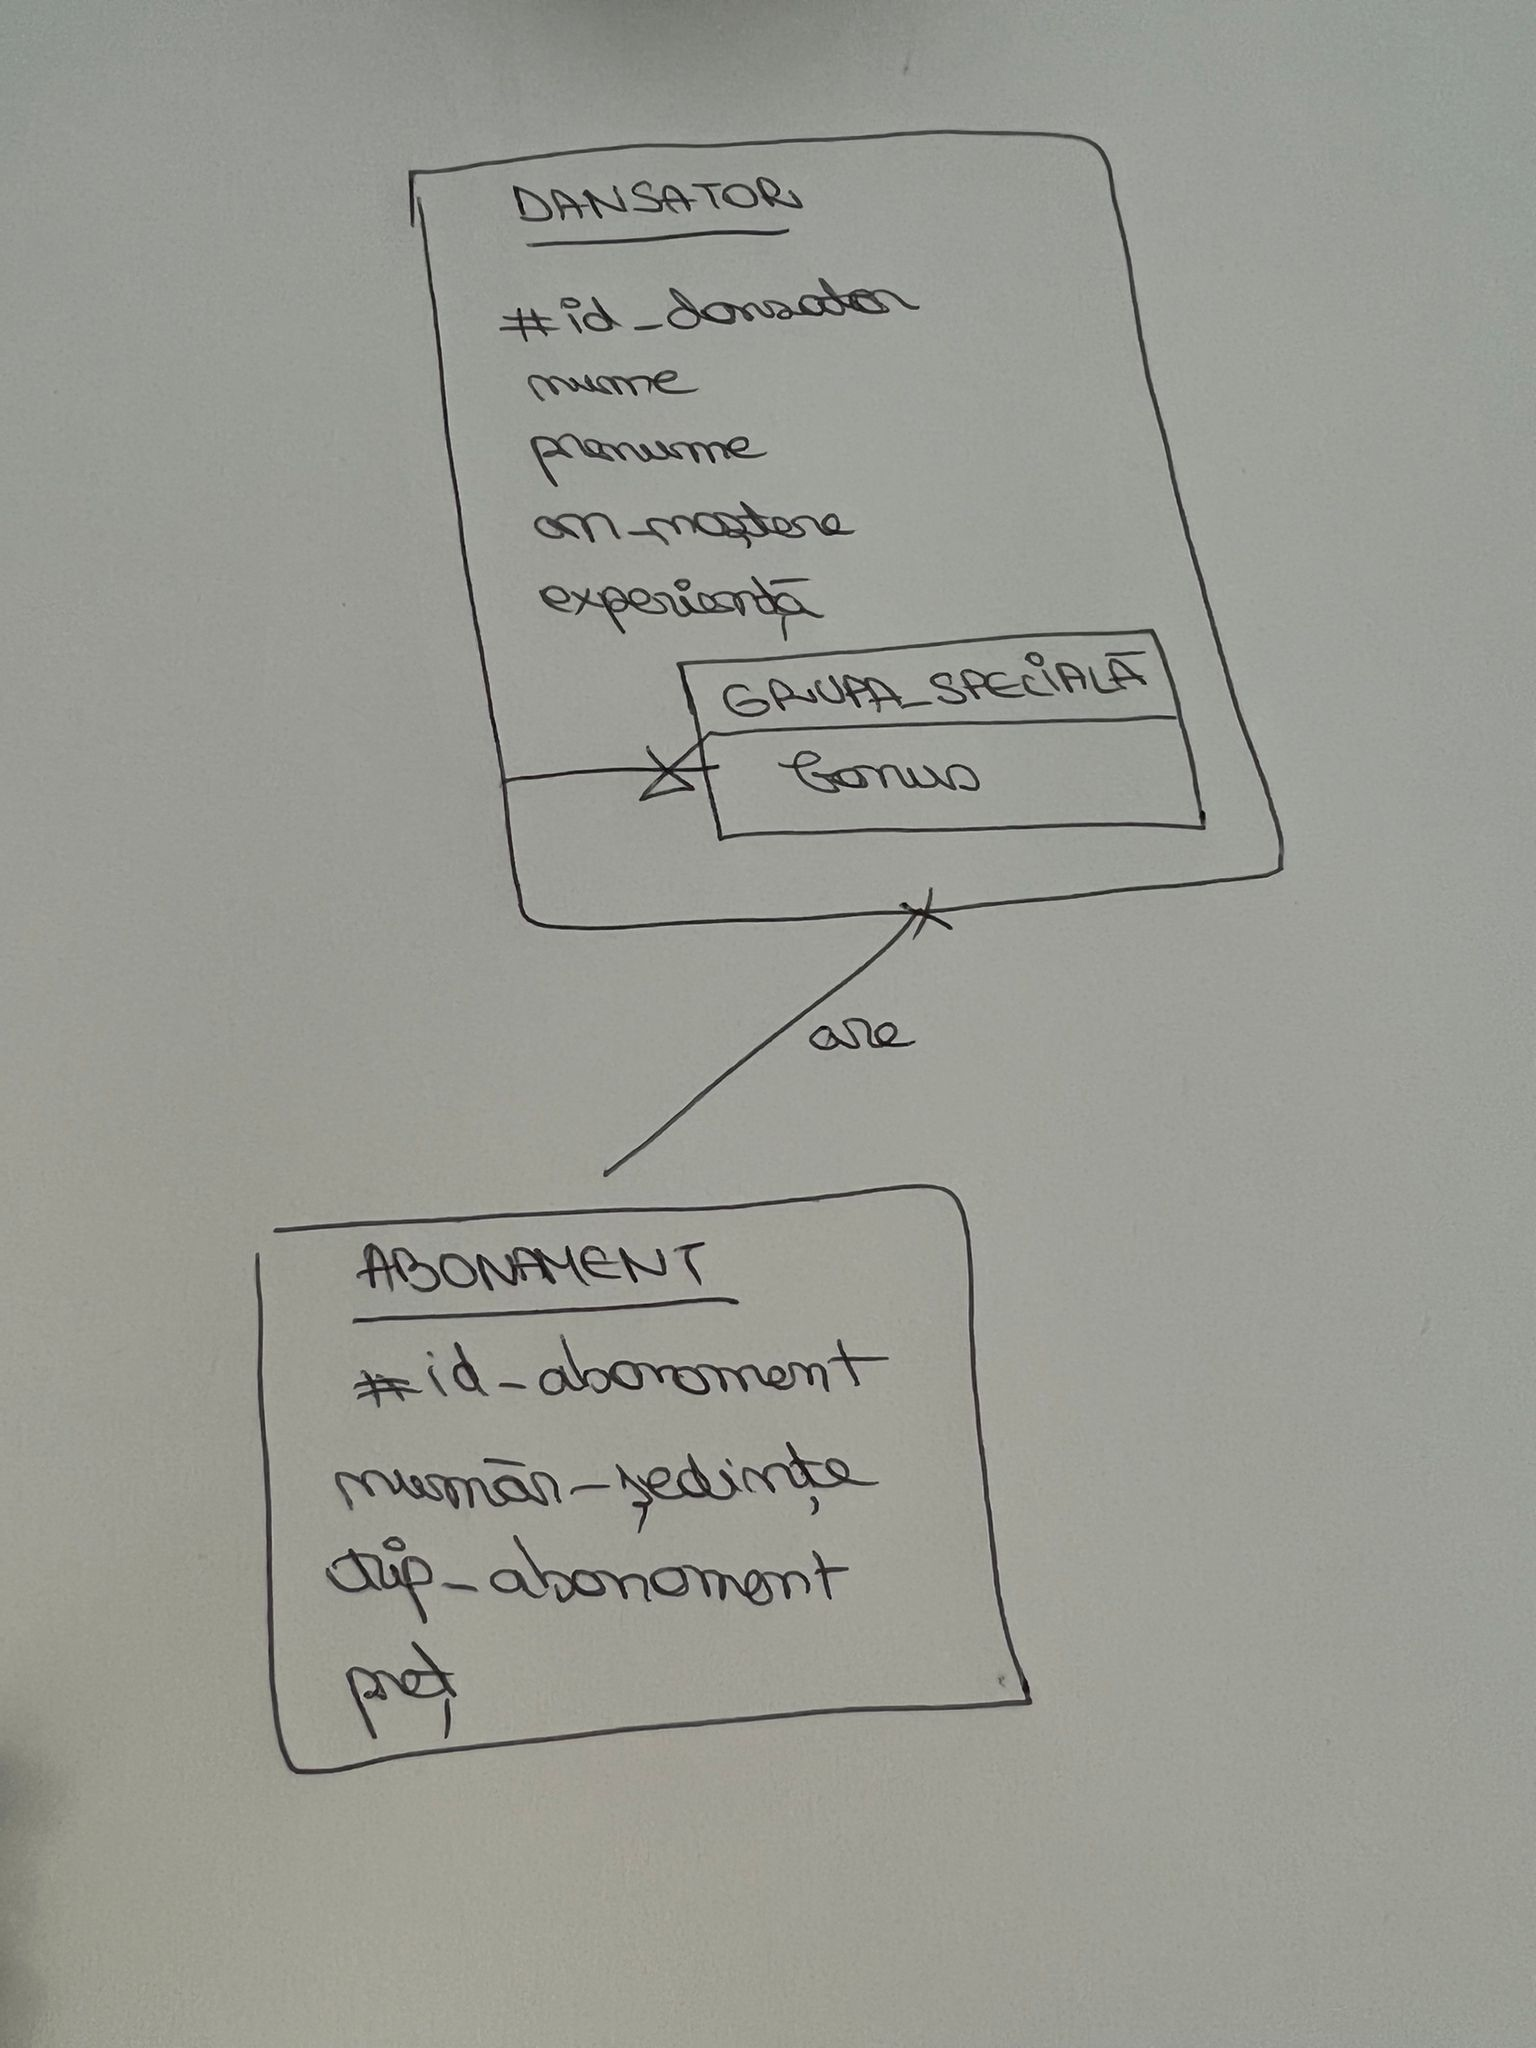 DANSATOR
#id_dansator
nume
prenume
an_naștere
experiență
GRUPA_SPECIALĂ
bonus
are
ABONAMENT
#id-abonament
număr-ședințe
tip-abonament
preț